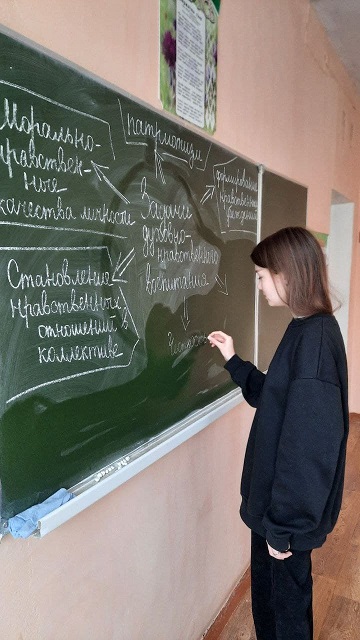 Морально-
нравствен-
ные
качества личности
патриотизм
формирование
нравственных
убеждений
Задачи
духовно-
нравственного
воспитания
Становление
нравственных
отношений в
коллективе